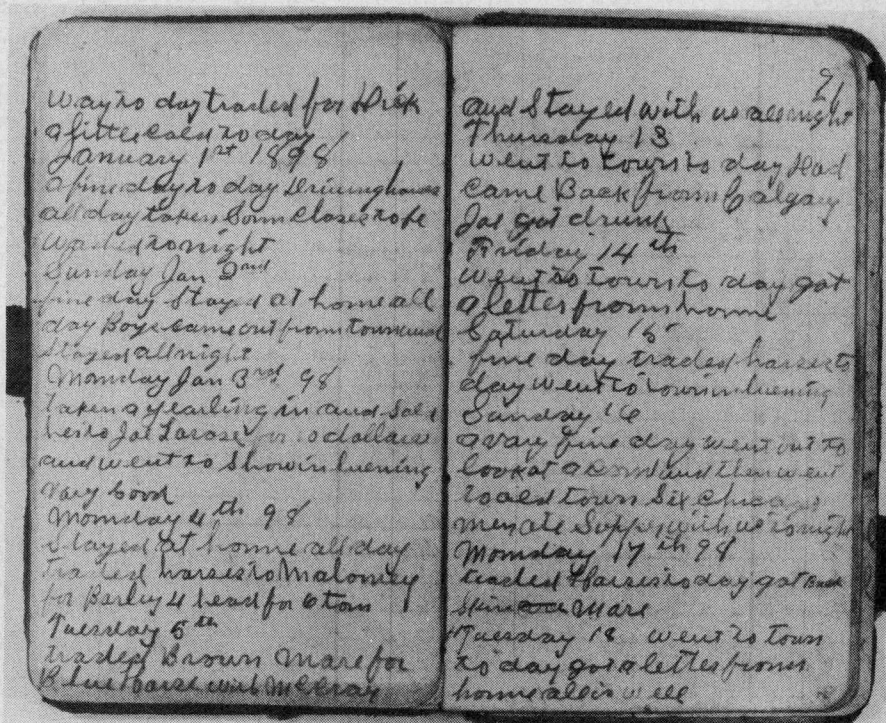 way to day traded for Dick
a little cald to day
January 1st 1898
a fine day to day Driving harses
all day taken Som Closes to be
Wached to night
Sunday Jan 2nd
fine day Stayed at home all
day Boys came out from town and
Stayed all night
Monday Jan 3rd 98
taken a yearling in and Sold
her to Joe Larose for 10 dollars
and went to Show in Evening
Vary Good
Monday 4th 98
Stayed at home all day
traded harses to Maloney
for Barley 4 head for 6 tom
Tuesday 5th
traded Brown Mare for
Blue harse with McCray
91
and Stayed with us all night
Thursday 13
went to town to day Had
came Back from Calgary
Joe got drunk
Friday 14th
went to town to day got
a letter from home
Saturday 15
fine day traded harses to
day went to town in Evening
Sunday 16
a vary fine day went out to
look at a and then went
to old town Six Chicago
men ate Supper with us to night
Monday 17th 98
traded Harses to day got Buck
Skin Mare
Tuesday 18 went to town
to day got a letter from
home all is well